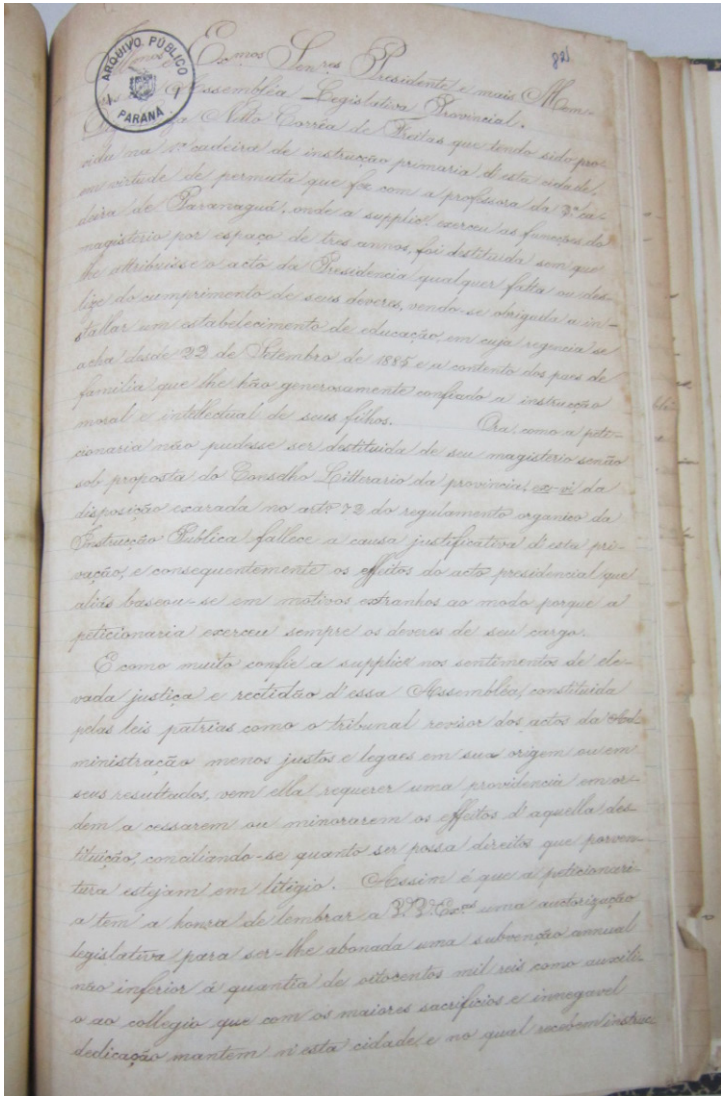 821
ARQUIVO PÚBLICO
PARANÁ
Ex.mos Sen.res Presidente e mais Mem-
Assembléa Legislativa Provincial.
Netto Corrêa de Freitas que tendo sido pro-
vida na cadeira de instrucção primaria d'esta cidade,
em virtude de permuta que fez com a professora da 2ª ca-
deira de Paranaguá, onde a supplic.e exerceu as funcções do
magisterio por espaço de tres annos, foi destituida sem que
lhe attribuisse o acto da Presidencia qualquer falta ou des-
lize do cumprimento de seus deveres, vendo-se obrigada a in-
stallar um estabelecimento de educação, em cuja regencia se
acha desde 22 de Setembro de 1885 e a contento dos paes de
familia que lhe hão generosamente confiado a instrucção
moral e intellectual de seus filhos. Ora, como a peti-
cionaria não pudesse ser destituida de seu magisterio senão
sob proposta do Conselho Litterario da provincia, ex-vi da
disposição exarada no art.º 72 do regulamento organico da
Instrucção Publica, fallece a causa justificativa d'esta pri-
vação, e consequentemente os effeitos do acto presidencial que
aliás baseou-se em motivos extranhos ao modo porque a
peticionaria exerceu sempre os deveres de seu cargo.
E como muito confie a supplic.e nos sentimentos de ele-
vada justiça e rectidão d'essa Assembléa, constituida
pelas leis patrias como o tribunal revisor dos actos da Ad-
ministração menos justos e legaes em sua origem ou em
seus resultados, vem ella requerer uma providencia em or-
dem a cessarem ou minorarem os effeitos d'aquella des-
tituição, conciliando-se quanto ser possa direitos que porven-
tura estejam em litigio. Assim é que a peticionari-
a tem a honra de lembrar a V.as Ex.as uma auctorização
legislativa para ser-lhe abonada uma subvenção annual
não inferior á quantia de oitocentos mil reis como auxili-
o ao collegio que com os maiores sacrificios e innegavel
dedicação mantem n'esta cidade e no qual recebem instruc